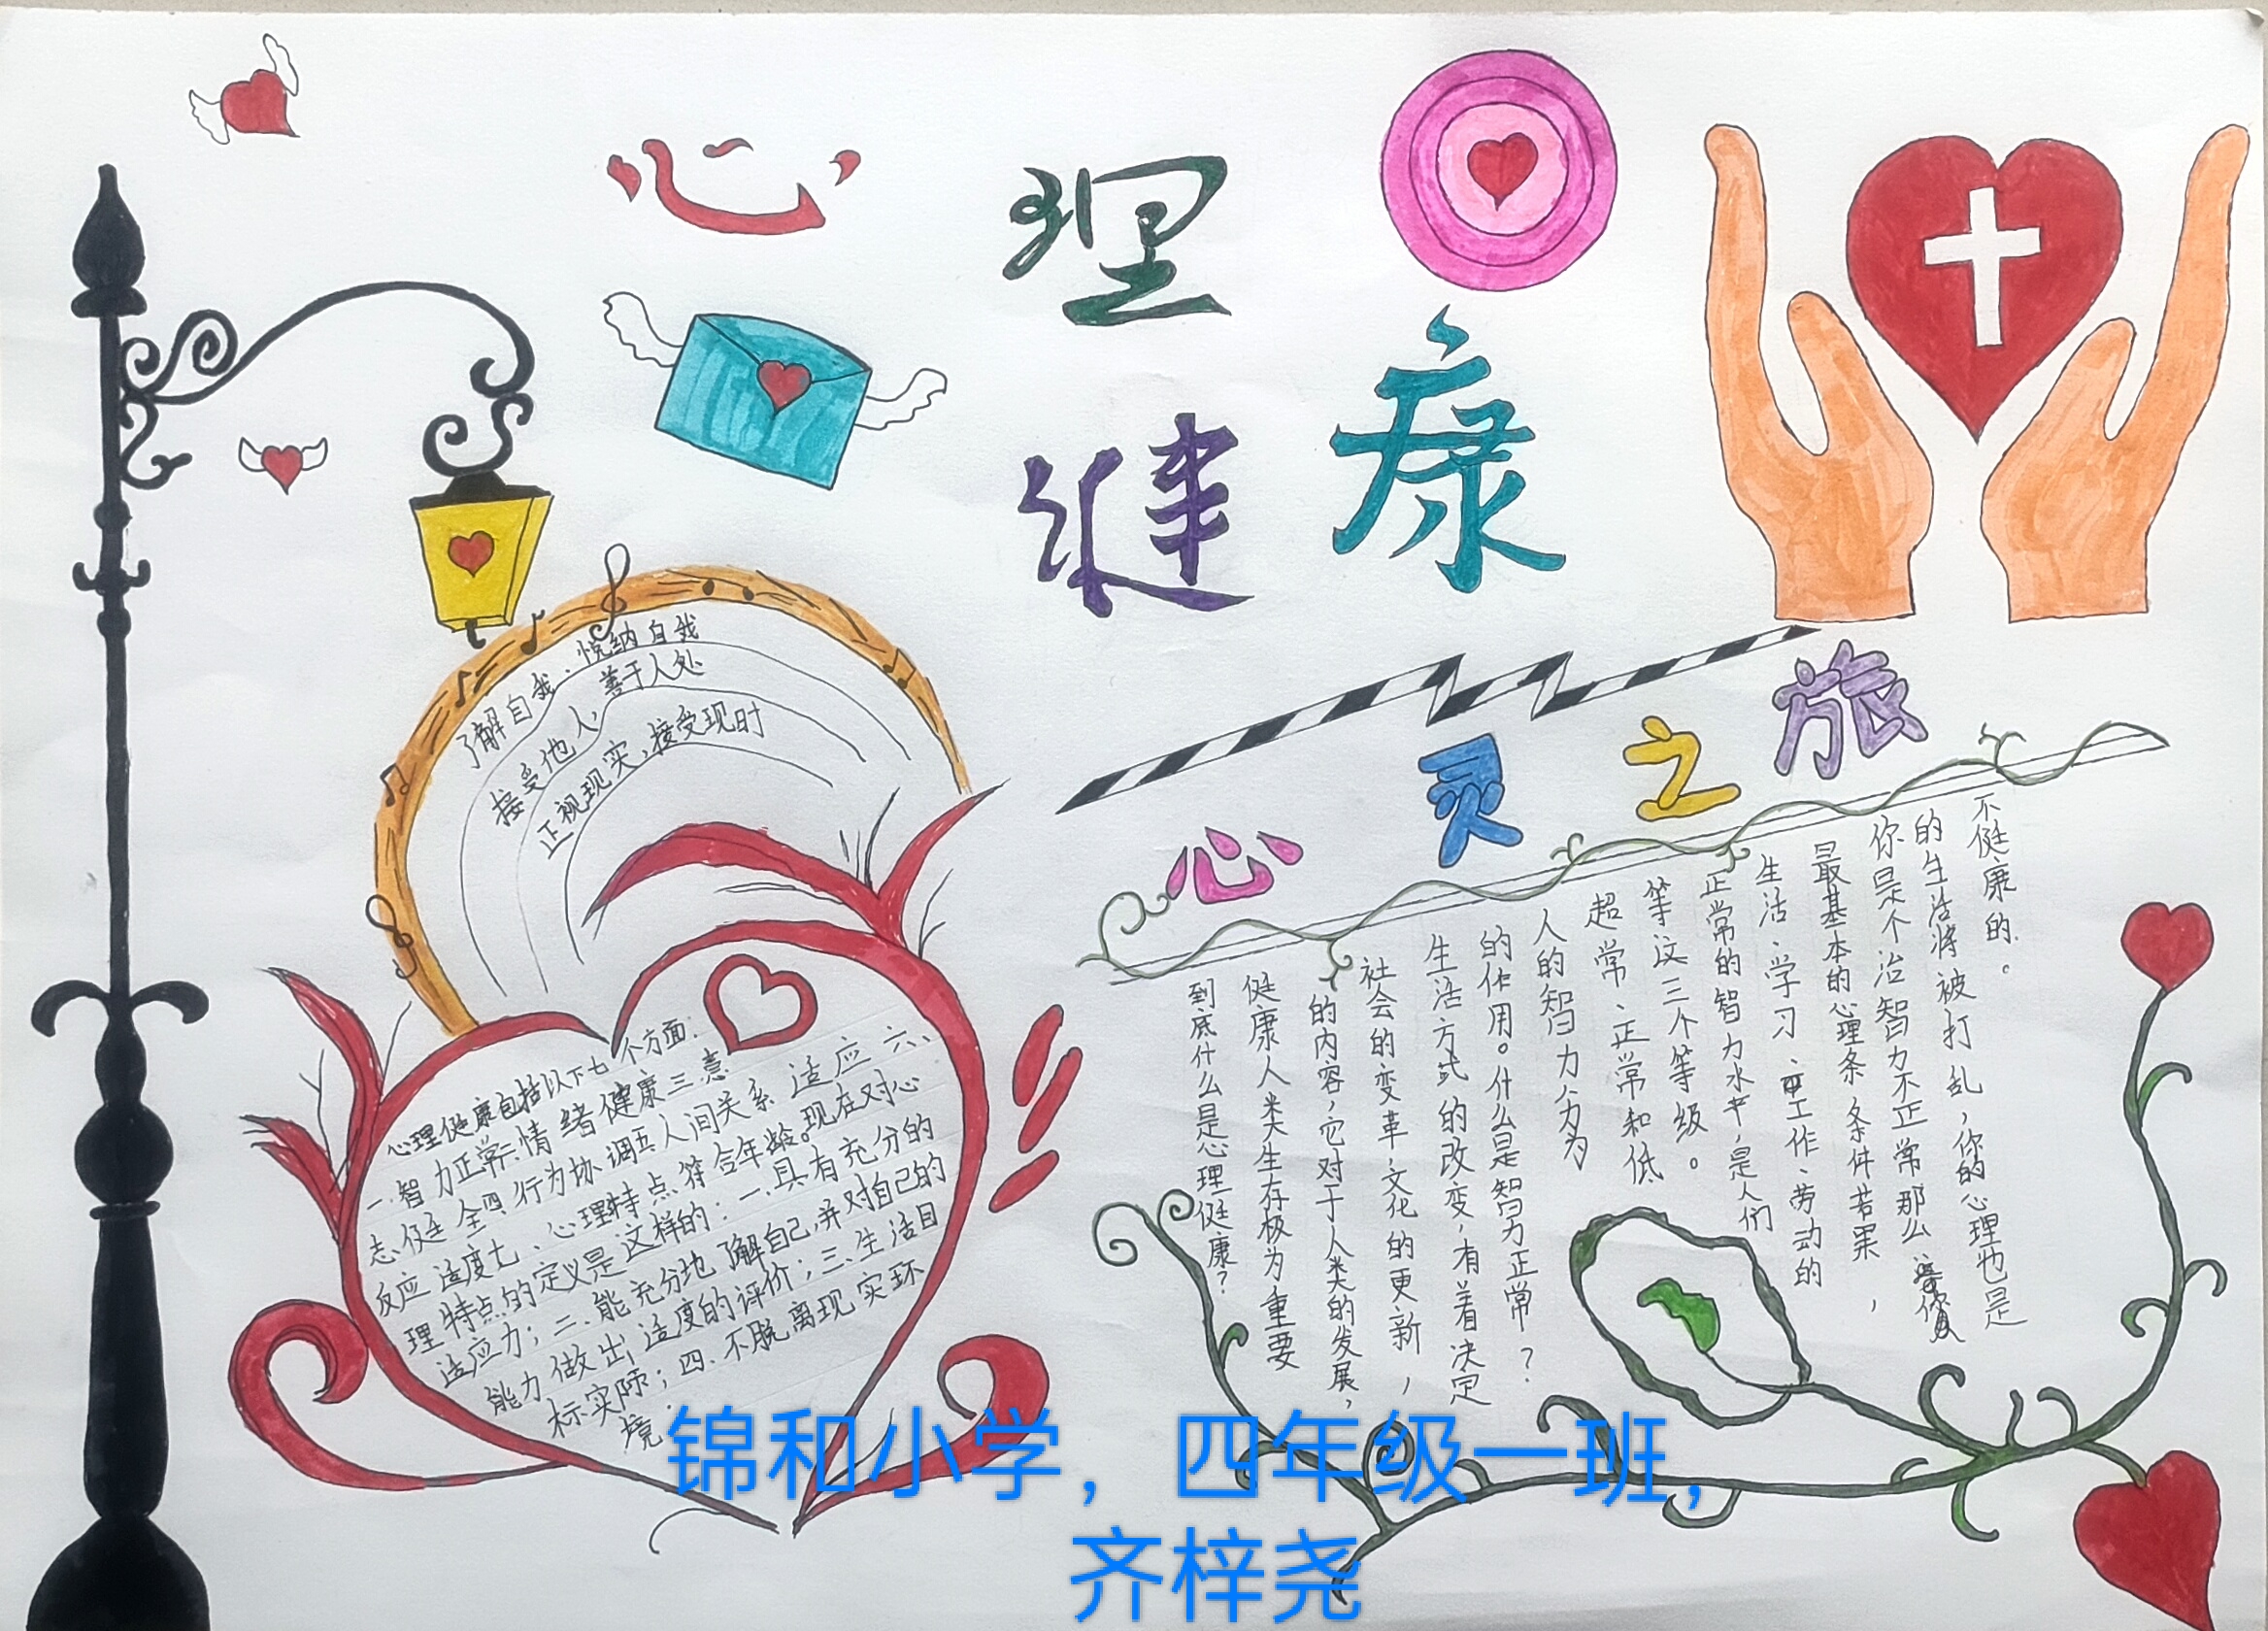 心理
健康
了解自我、悦纳自我
接受他人,善于人处
正视现实,接受现时
心理健康包括以下七个方面:
一.智力正常二.情绪健康三.意
志健全四.行为协调五人间关系适应六、
反应适度七、心理特点符合年龄。现在对心
理特点的定义是这样的:一.具有充分的
适应力;二.能充分地了解自己,并对自己的
能力做出适度的评价;三.生活目
标实际;四.不脱离现实环
境;
心灵之旅
到底什么是心理健康?
健康人类生存极为重要
的内容,它对于人类的发展,
社会的变革,文化的更新,
生活方式的改变,有着决定
的作用。什么是智力正常?
人的智力分为
超常、正常和低
等这三个等级。
正常的智力水平,是人们
生活、学习、工作、劳动的
最基本的心理条件若果,
你是个治智力不正常那么
的生活将被打乱,你的心理也是
不健康的。
锦和小学,四年级一班,
齐梓尧